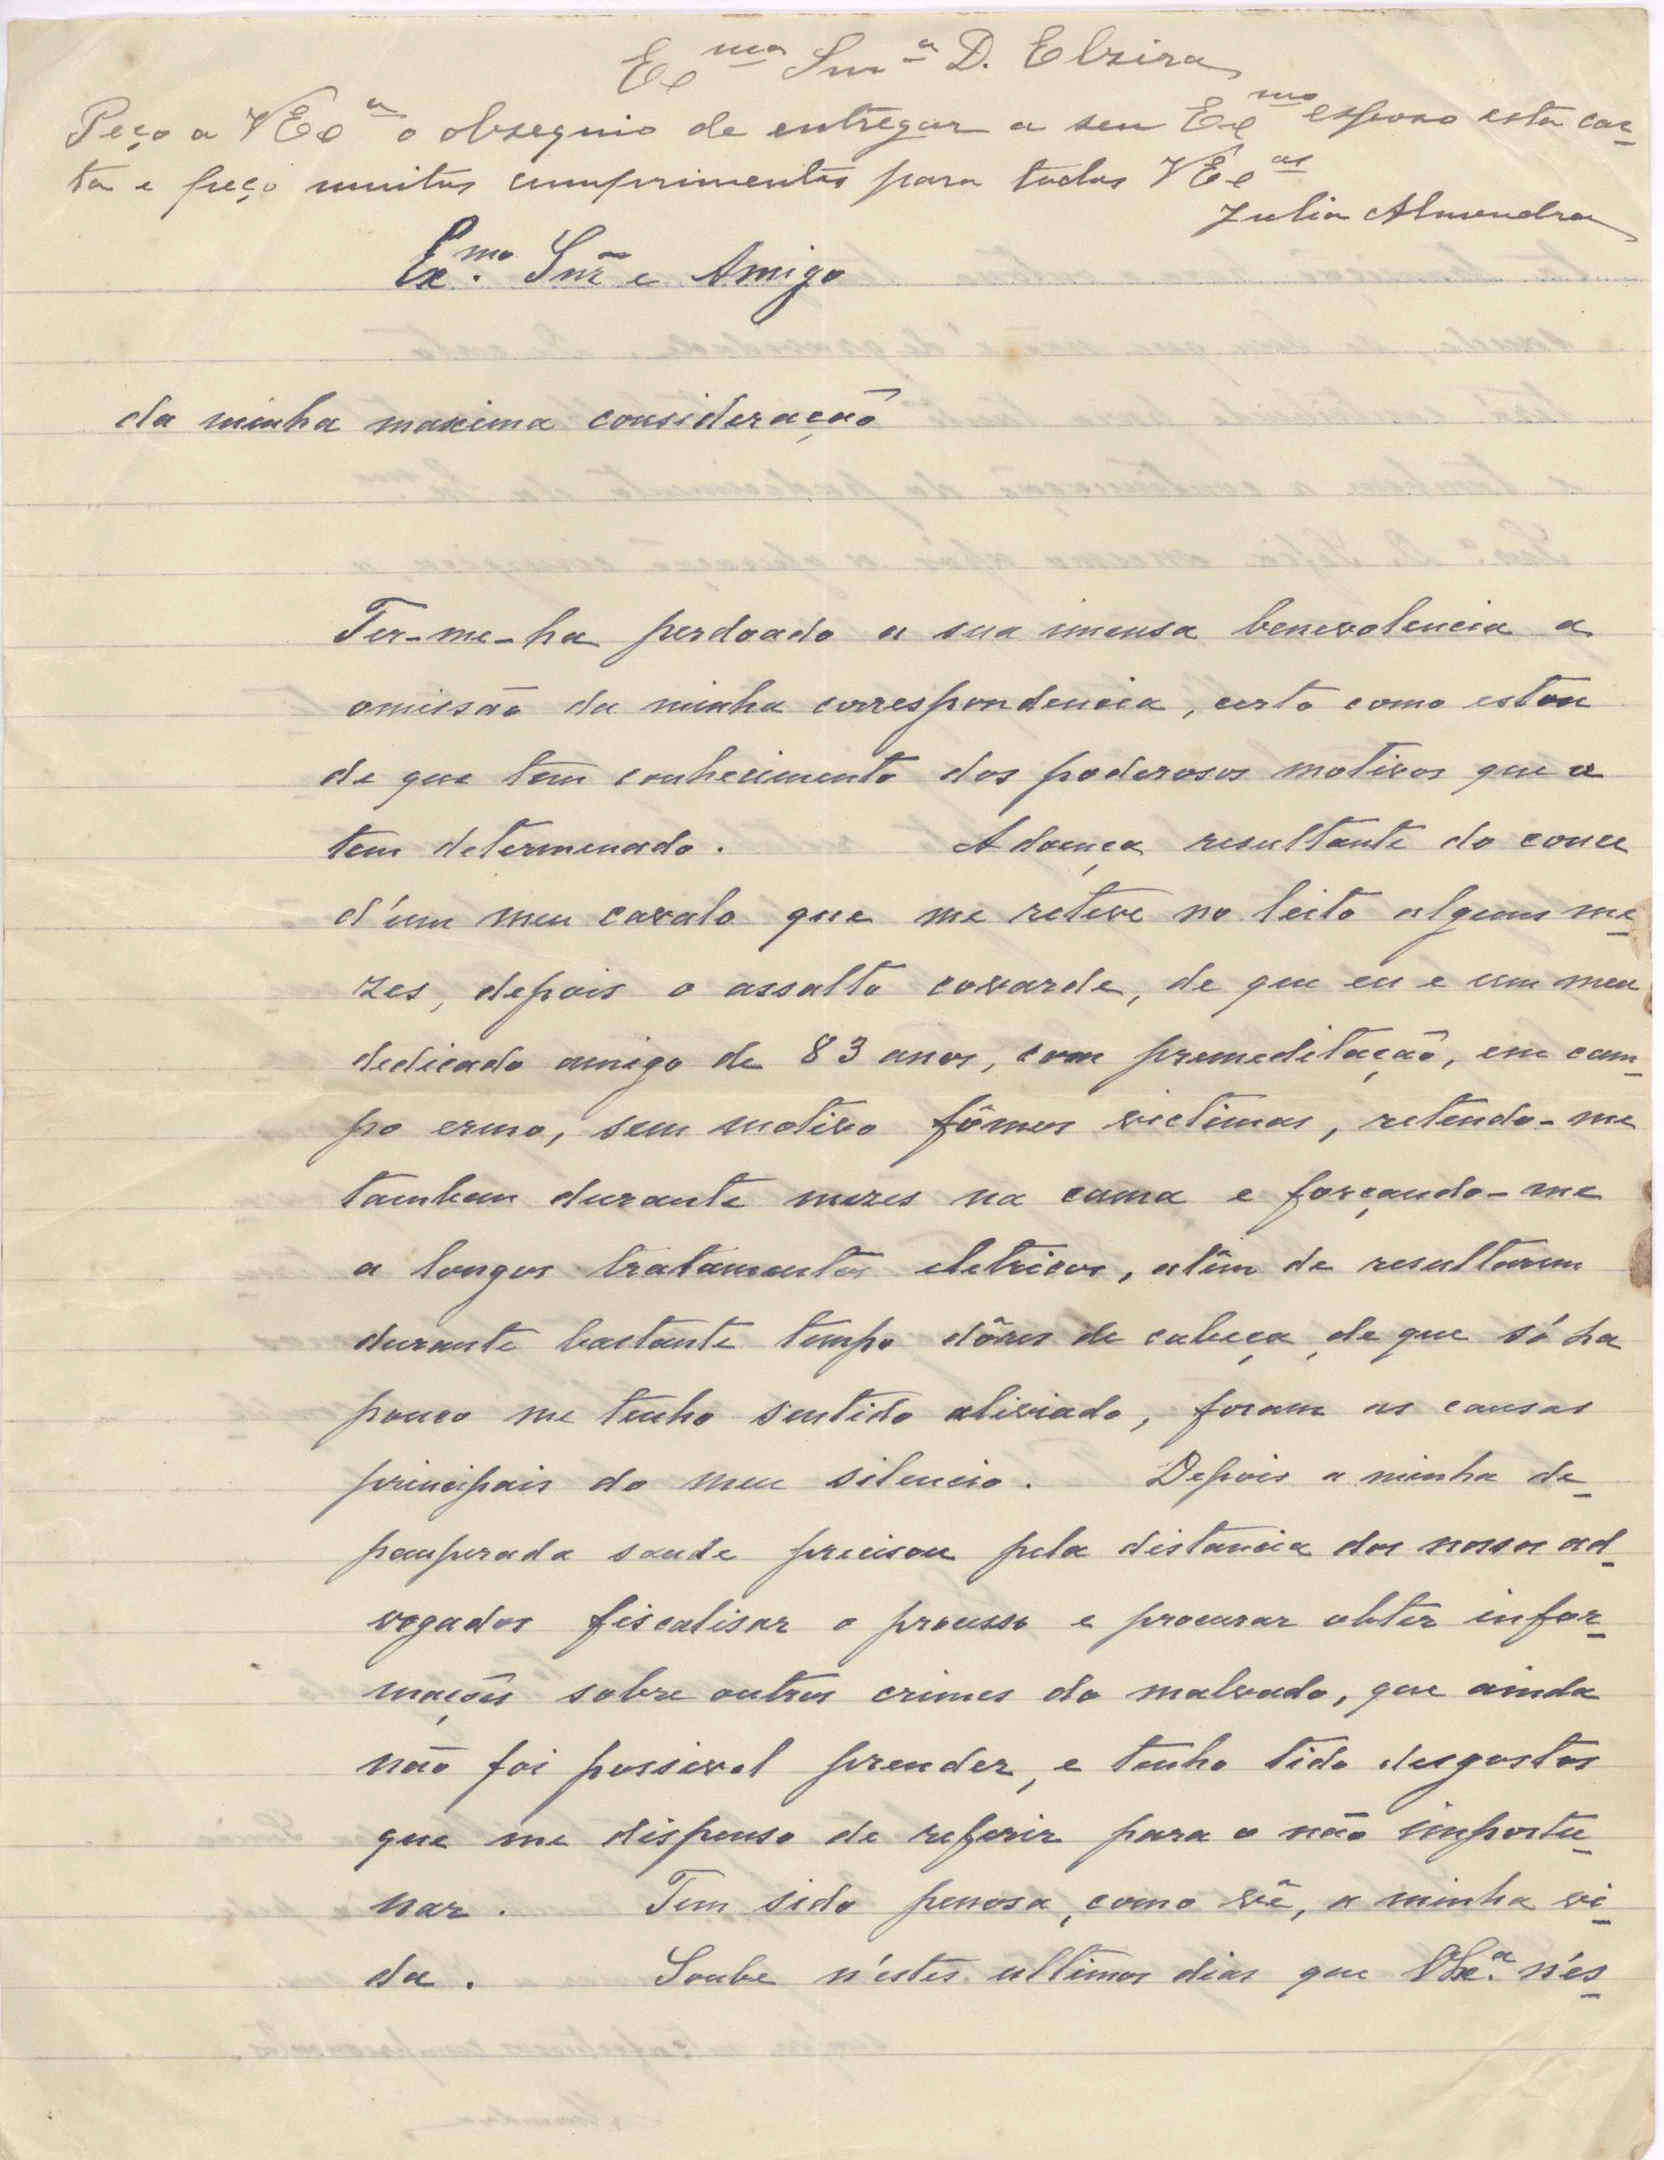 Ex^ma Snr^a D. Elzira
Peço a VEx^a o obsequio de entregar a seu Ex^mo esposo esta car-
ta e peço muitos cumprimentos para todos VEx^as
Julia Almendra
Ex.^mo Snr e Amigo
da minha maxima consideração
Ter-me-ha perdoado a sua imensa benevolencia a
omissão da minha correspondencia, certo como estou
de que tem conhecimento dos poderosos motivos que a
tem determenado. A doença resultante do couce
d'um meu cavalo que me reteve no leito alguns me-
zes, depois o assalto covarde, de que eu e um meu
dedicado amigo de 83 anos, com premeditação, em cam-
po ermo, sem motivo fômos victimas, retendo-me
tambem durante mezes na cama e forçando-me
a longos tratamentos eletricos, alêm de resultarem
durante bastante tempo dôres de cabeça, de que só ha
pouco me tenho sentido aliviado, foram as causas
principais do meu silencio. Depois a minha de-
pauperada saude precisou pela distancia dos nossos ad-
vogados fiscalisar o processo e procurar obter infor-
mações sobre outros crimes do malvado, que ainda
não foi possivel prender, e tenho tido desgostos
que me dispenso de referir para o não importu-
nar. Tem sido penosa, como vê, a minha vi-
da. Soube n'estes ultimos dias que VEx.^a n'es-